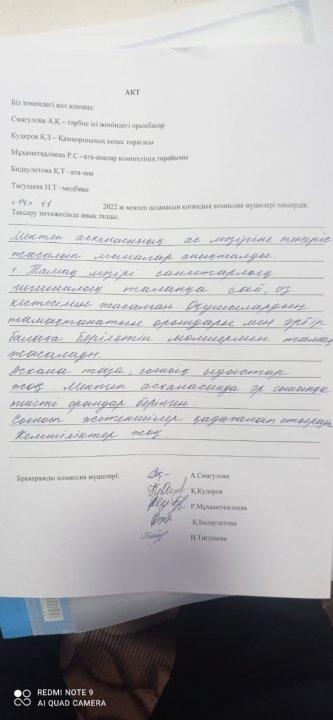 АКТ
Біз төмендегі қол қоюшы:
Смагулова А.Қ – тәрбие ісі жөніндегі орынбасар
Кудеров Қ.З – Қамқоршылық кеңес төрағасы
Мұхаметкалиева Р.С –ата-аналар комитетінің төрайымы
Бидаулетова Қ.Т –ата-ана
Тигушева Н.Т –медбике
«14» 11 2022 ж мектеп асханасын қоғамдық комиссия мүшелері тексердік.
Тексеру нәтижесінде анықталды:
Мектеп асханасының ас мәзіріне тексеріс
жасалып мыналар анықталды.
1. Тамақ мәзірі санитарлық
гигиеналық талапқа сай, өз
кестесімен жасалған Оқушылардың
тамақтанатын орындары мен әрбір
балаға берілетін мөлшермен тамақ
жасалады.
Асхана таза, сынық ыдыстар
жоқ. Мектеп асханасында әр сыныпқа
тиісті орындар берілген.
Сынып жетекшілер қадағалап отырады
Кемшіліктер жоқ.
Бракераждық комиссия мүшелері:
А.Смагулова
Қ.Кудеров
Р.Мұхаметкалиева
Қ.Бидаулетова
Н.Тигушева
REDMI NOTE 9
AI QUAD CAMERA